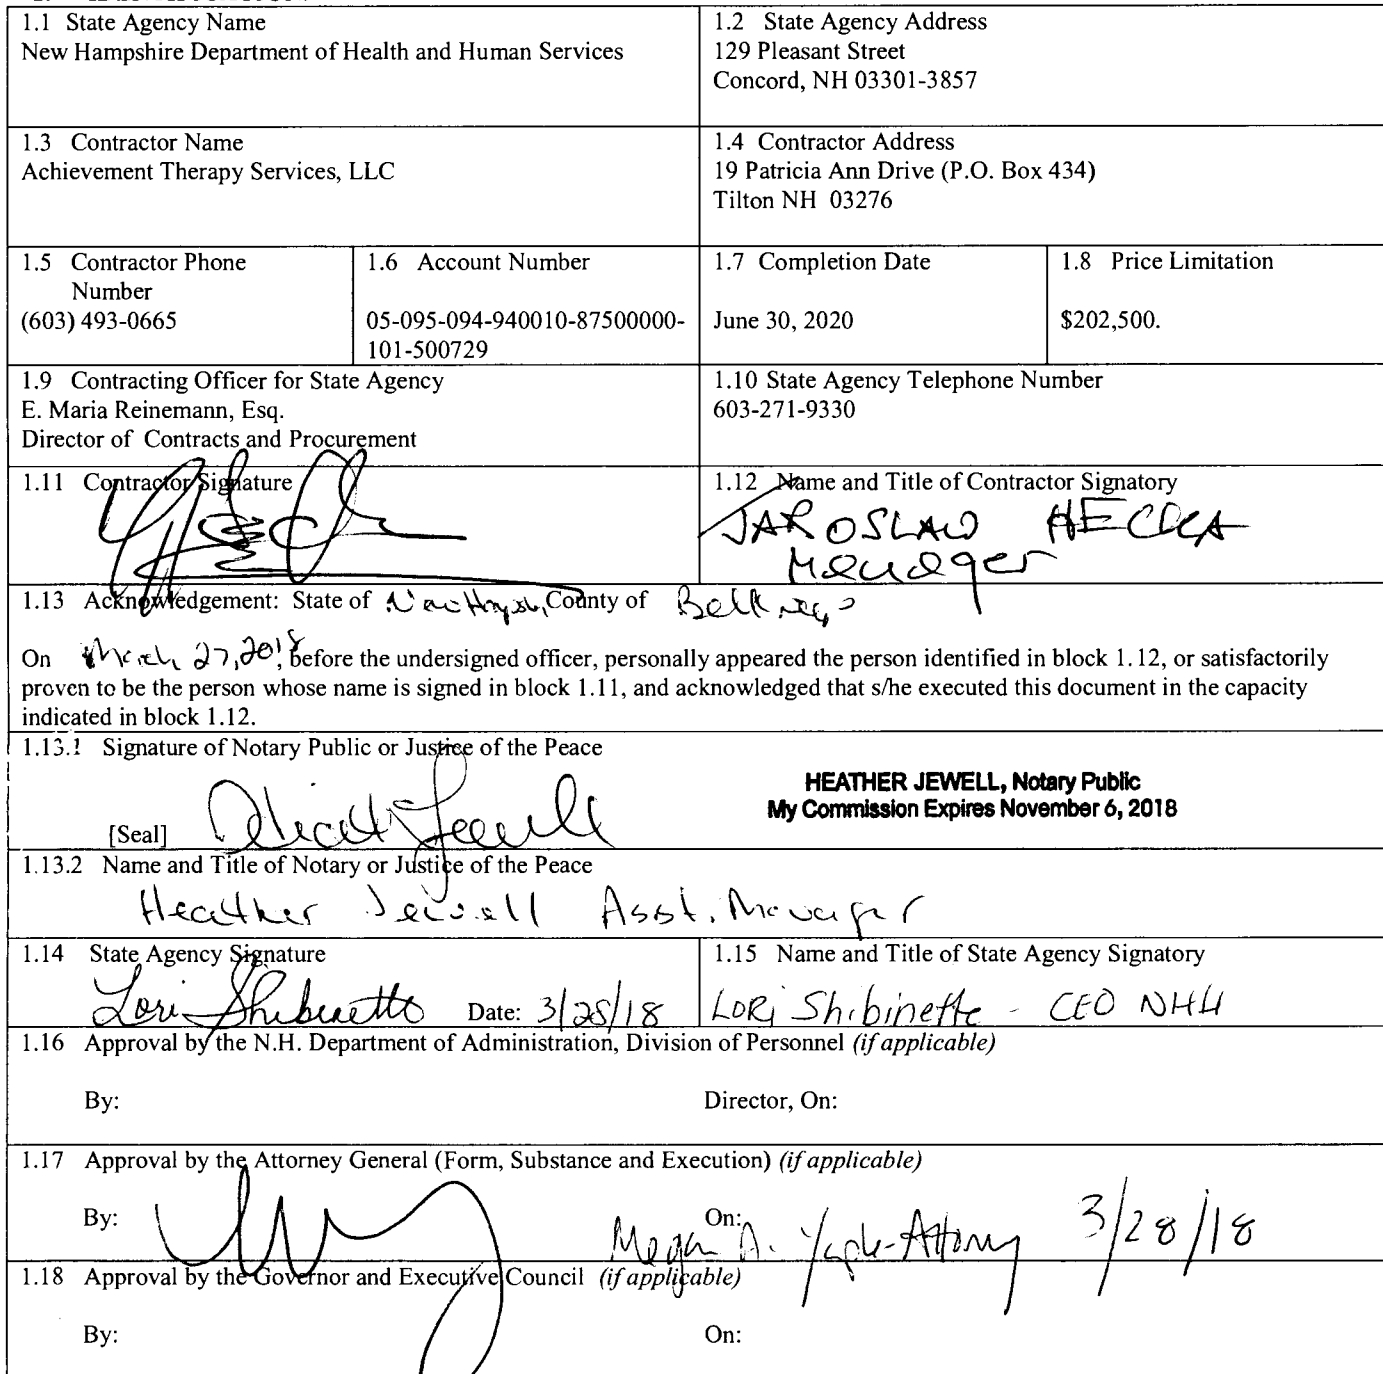 1.1 State Agency Name
New Hampshire Department of Health and Human Services
1.2 State Agency Address
129 Pleasant Street
Concord, NH 03301-3857
1.3 Contractor Name
Achievement Therapy Services, LLC
1.4 Contractor Address
19 Patricia Ann Drive (P.O. Box 434)
Tilton NH 03276
1.5 Contractor Phone
Number
(603) 493-0665
1.6 Account Number
05-095-094-940010-87500000-
101-500729
1.7 Completion Date
June 30, 2020
1.8 Price Limitation
$202,500.
1.9 Contracting Officer for State Agency
E. Maria Reinemann, Esq.
Director of Contracts and Procurement
1.10 State Agency Telephone Number
603-271-9330
1.11 Contractor Signature
1.12 Name and Title of Contractor Signatory
JAROSLAW
Manager
1.13 Acknowledgement: State of New Hampsh, County of Belknap
On March 27, 2018, before the undersigned officer, personally appeared the person identified in block 1.12, or satisfactorily
proven to be the person whose name is signed in block 1.11, and acknowledged that s/he executed this document in the capacity
indicated in block 1.12.
1.13.1 Signature of Notary Public or Justice of the Peace
HEATHER JEWELL, Notary Public
My Commission Expires November 6, 2018
[Seal]
1.13.2 Name and Title of Notary or Justice of the Peace
Heather Jewell Asst. Manager
1.14 State Agency Signature
Lori Shibinette Date: 3/28/18
1.15 Name and Title of State Agency Signatory
LORi Shibinette - CEO NHH
1.16 Approval by the N.H. Department of Administration, Division of Personnel (if applicable)
By: Director, On:
1.17 Approval by the Attorney General (Form, Substance and Execution) (if applicable)
By: On: Megan A. -Attorney 3/28/18
1.18 Approval by the Governor and Executive Council (if applicable)
By: On: